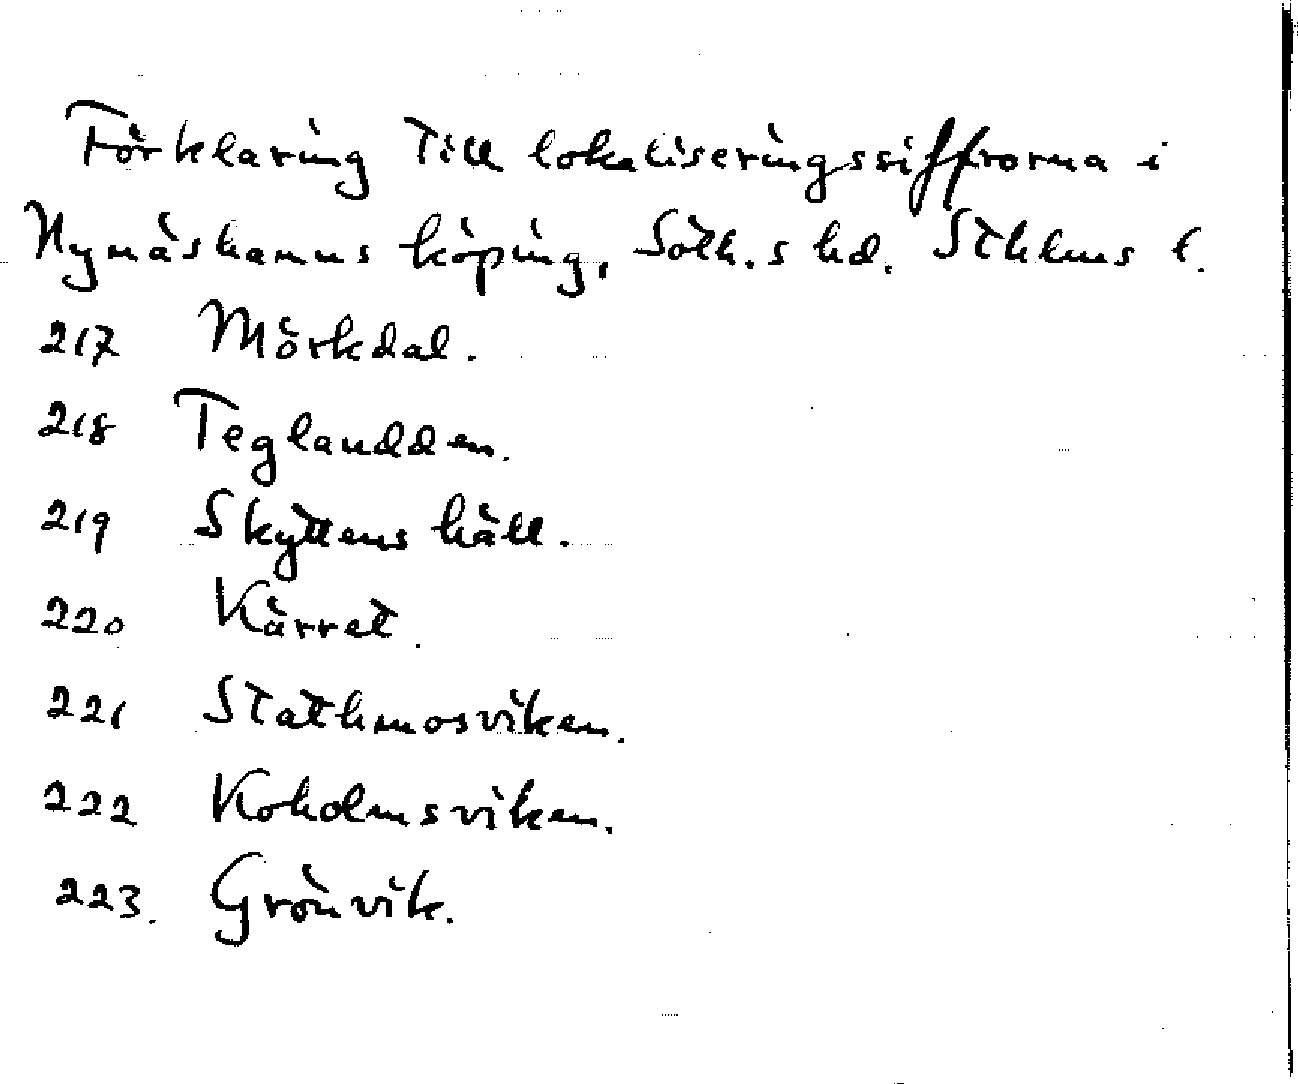 Förklaring till lokaliseringssiffrorna i
Nynäshamns köping, Soth.s hd. Sthlms l.
217 Mörkdal.
218 Teglaudden.
219 Skyttens häll.
220 Kärret.
221 Stathmosviken.
222 Koholmsviken.
223. Grönvik.